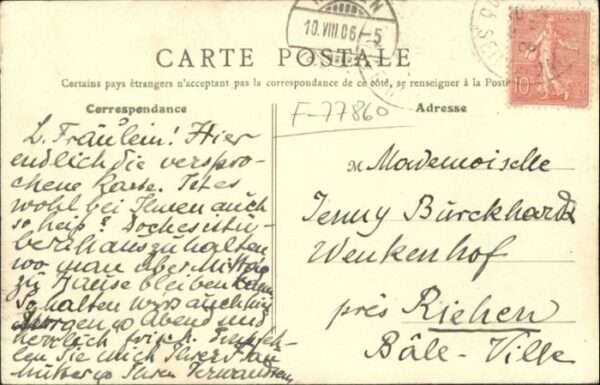 10.VIII.06.-5
CARTE POSTALE
Certains pays étrangers n'acceptant pas la correspondance de ce côté, se renseigner à la Poste
Correspondance
Adresse
F-77860
10
L. Fräulein! Hier
endlich die verspro-
chene Karte. Ist es
wohl bei Ihnen auch
so heiß? Doch es ist
zuhalten
wo man über Mittag
zu Hause bleiben kann
So halten wirs auch hier
Morgen & Abend sind
herrlich frisch. Empfeh-
len Sie mich Ihrer Frau
Mutter & Ihren Verwandten
M Mademoiselle
Jenny Burckhardt
Wenkenhof
près Riehen
Bâle-Ville